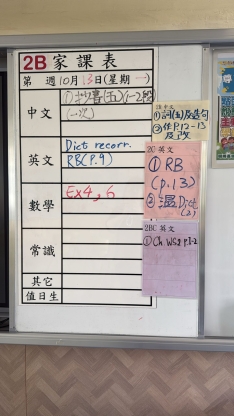 2B 家課表
第 週 10月13日(星期一)
中文
①抄書(五)(1-2段)
(一次)
英文
Dict recorr.
RB(P.9)
數學
Ex4,6
常識
其它
值日生
2B 中文
①詞(五)及造句
②作P.12-13
及改
2C 英文
① RB
(p.13)
② 溫Dict
(2)
2BC 英文
① Ch. WS2 p.1-2